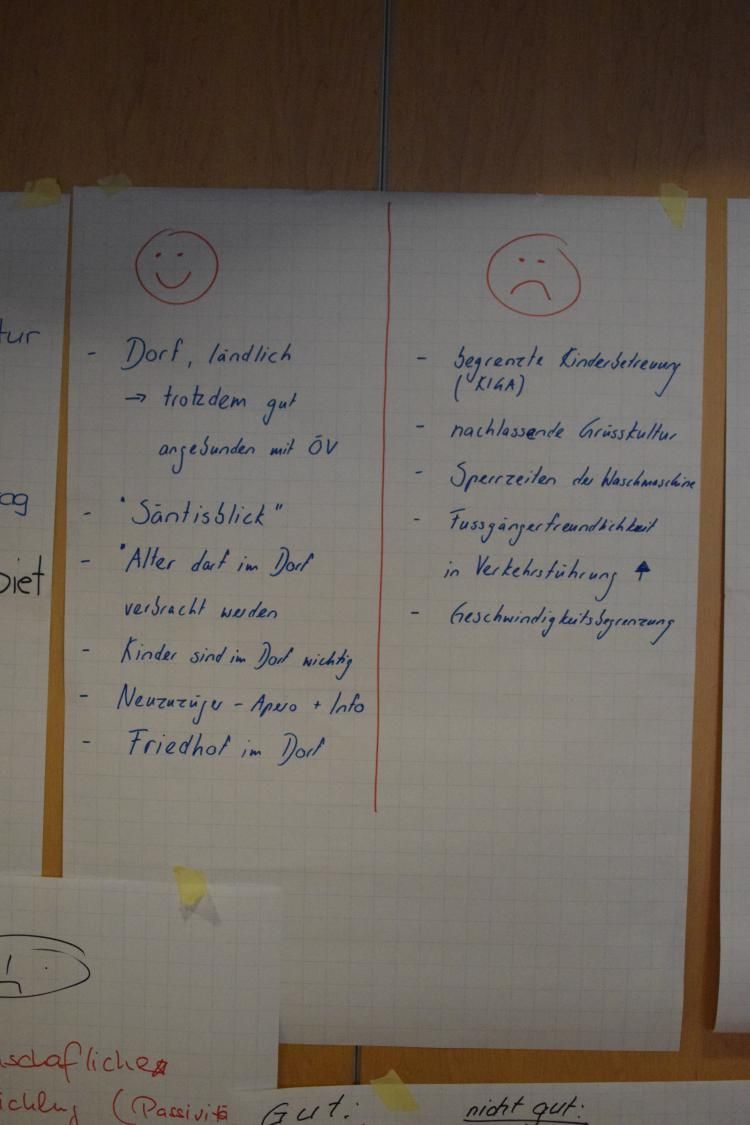 - Dorf, ländlich
→ trotzdem gut
angebunden mit ÖV
- "Säntisblick"
- "Alter darf im Dorf
verbracht werden
- Kinder sind im Dorf wichtig
- Neuzuzüger - Apero + Info
- Friedhof im Dorf
- begrenzte Kinderbetreuung
(KIGA)
- nachlassende Grüsskultur
- Sperrzeiten der Waschmaschine
- Fussgängerfreundlichkeit
in Verkehrsführung ↑
- Geschwindigkeitsbegrenzung
tur
og
biet
schafliche
ichlung (Passivitä
Gut:
nicht gut: